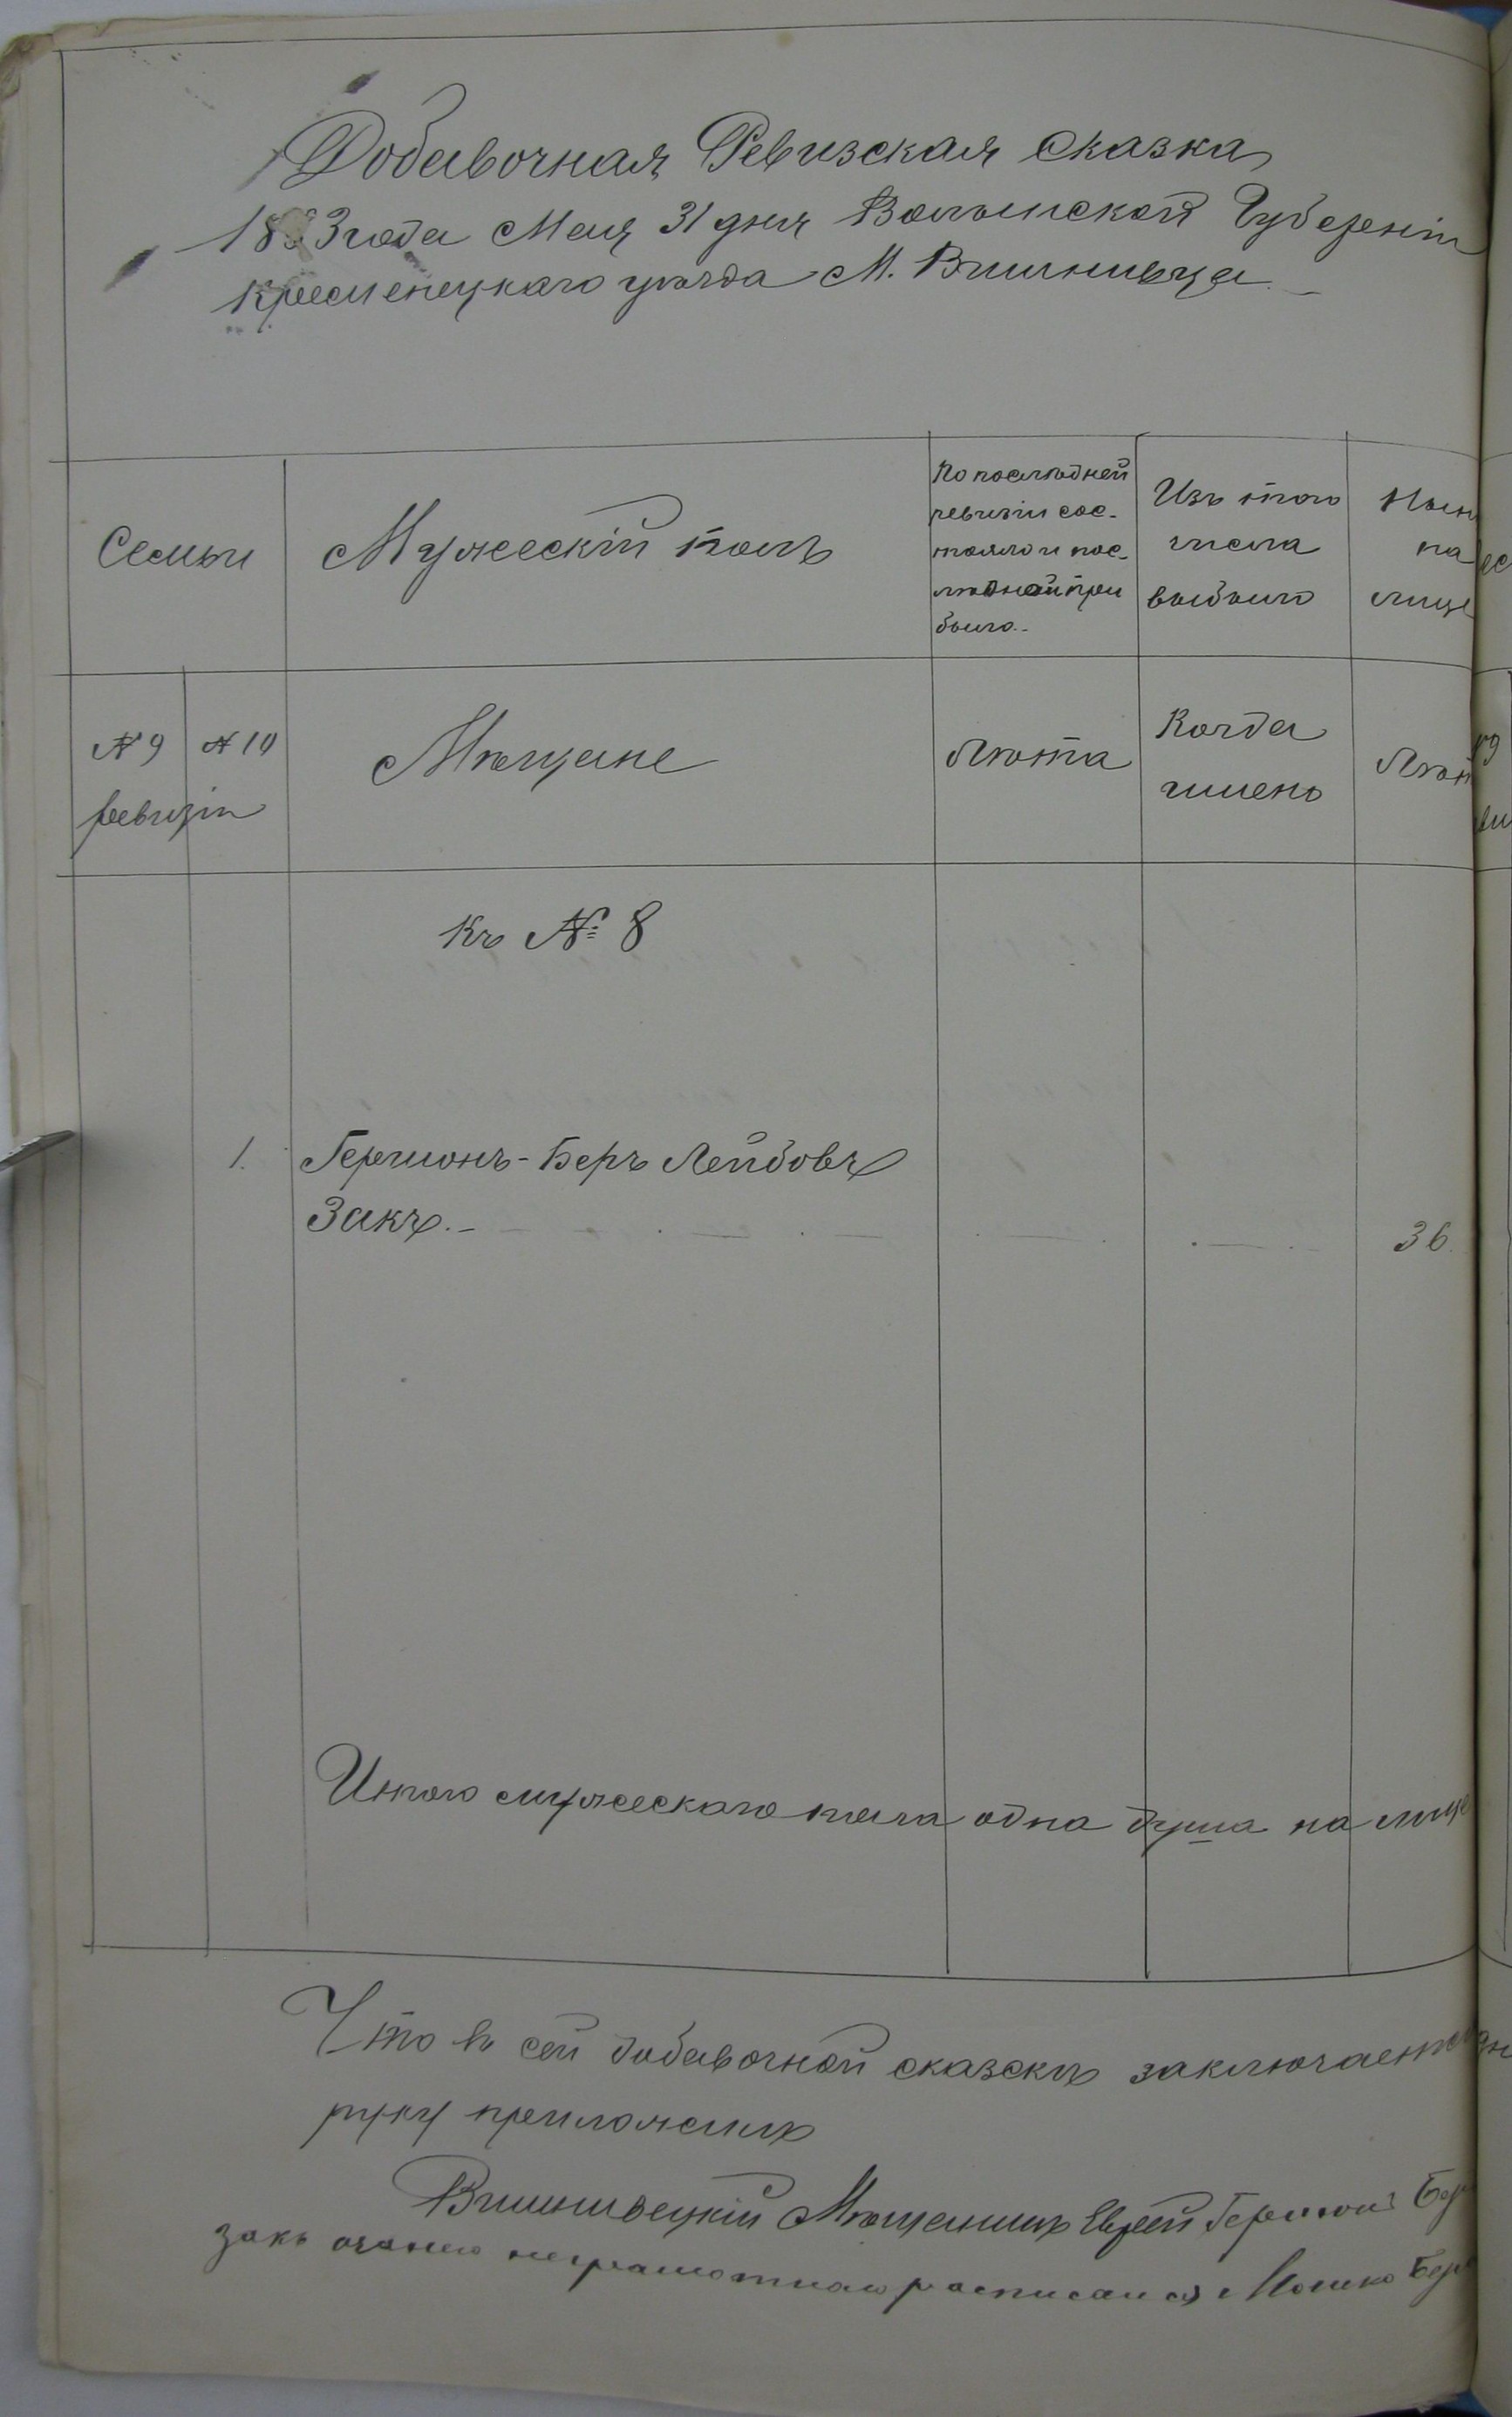 Добавочная Ревизская сказка
18 3 года Мая 31 дня Волынской Губерніи
Кременецкаго уѣзда М. Вишнивца. —
Семьи
Мужескій полъ
По послѣдней
ревизіи сос-
тояло и пос-
лѣдней при
было. -
Изъ того
числа
выбыло
Нын
на
лице
№ 9
№ 10
ревизіи
Мѣщане
Лѣта
Когда
имено
Лѣт
Къ № 8
1.
Гершонъ-Беръ Лейбовъ
Закъ. -
36.
Итого мужескаго пола одна душа на лице
Что въ сей добавочной сказскѣ заключается
руку приложилъ
Вишнивецкій Мѣщанинъ Еврей Гершонъ Бер
закъ а за него неграмотнаго росписался Мошко Бер